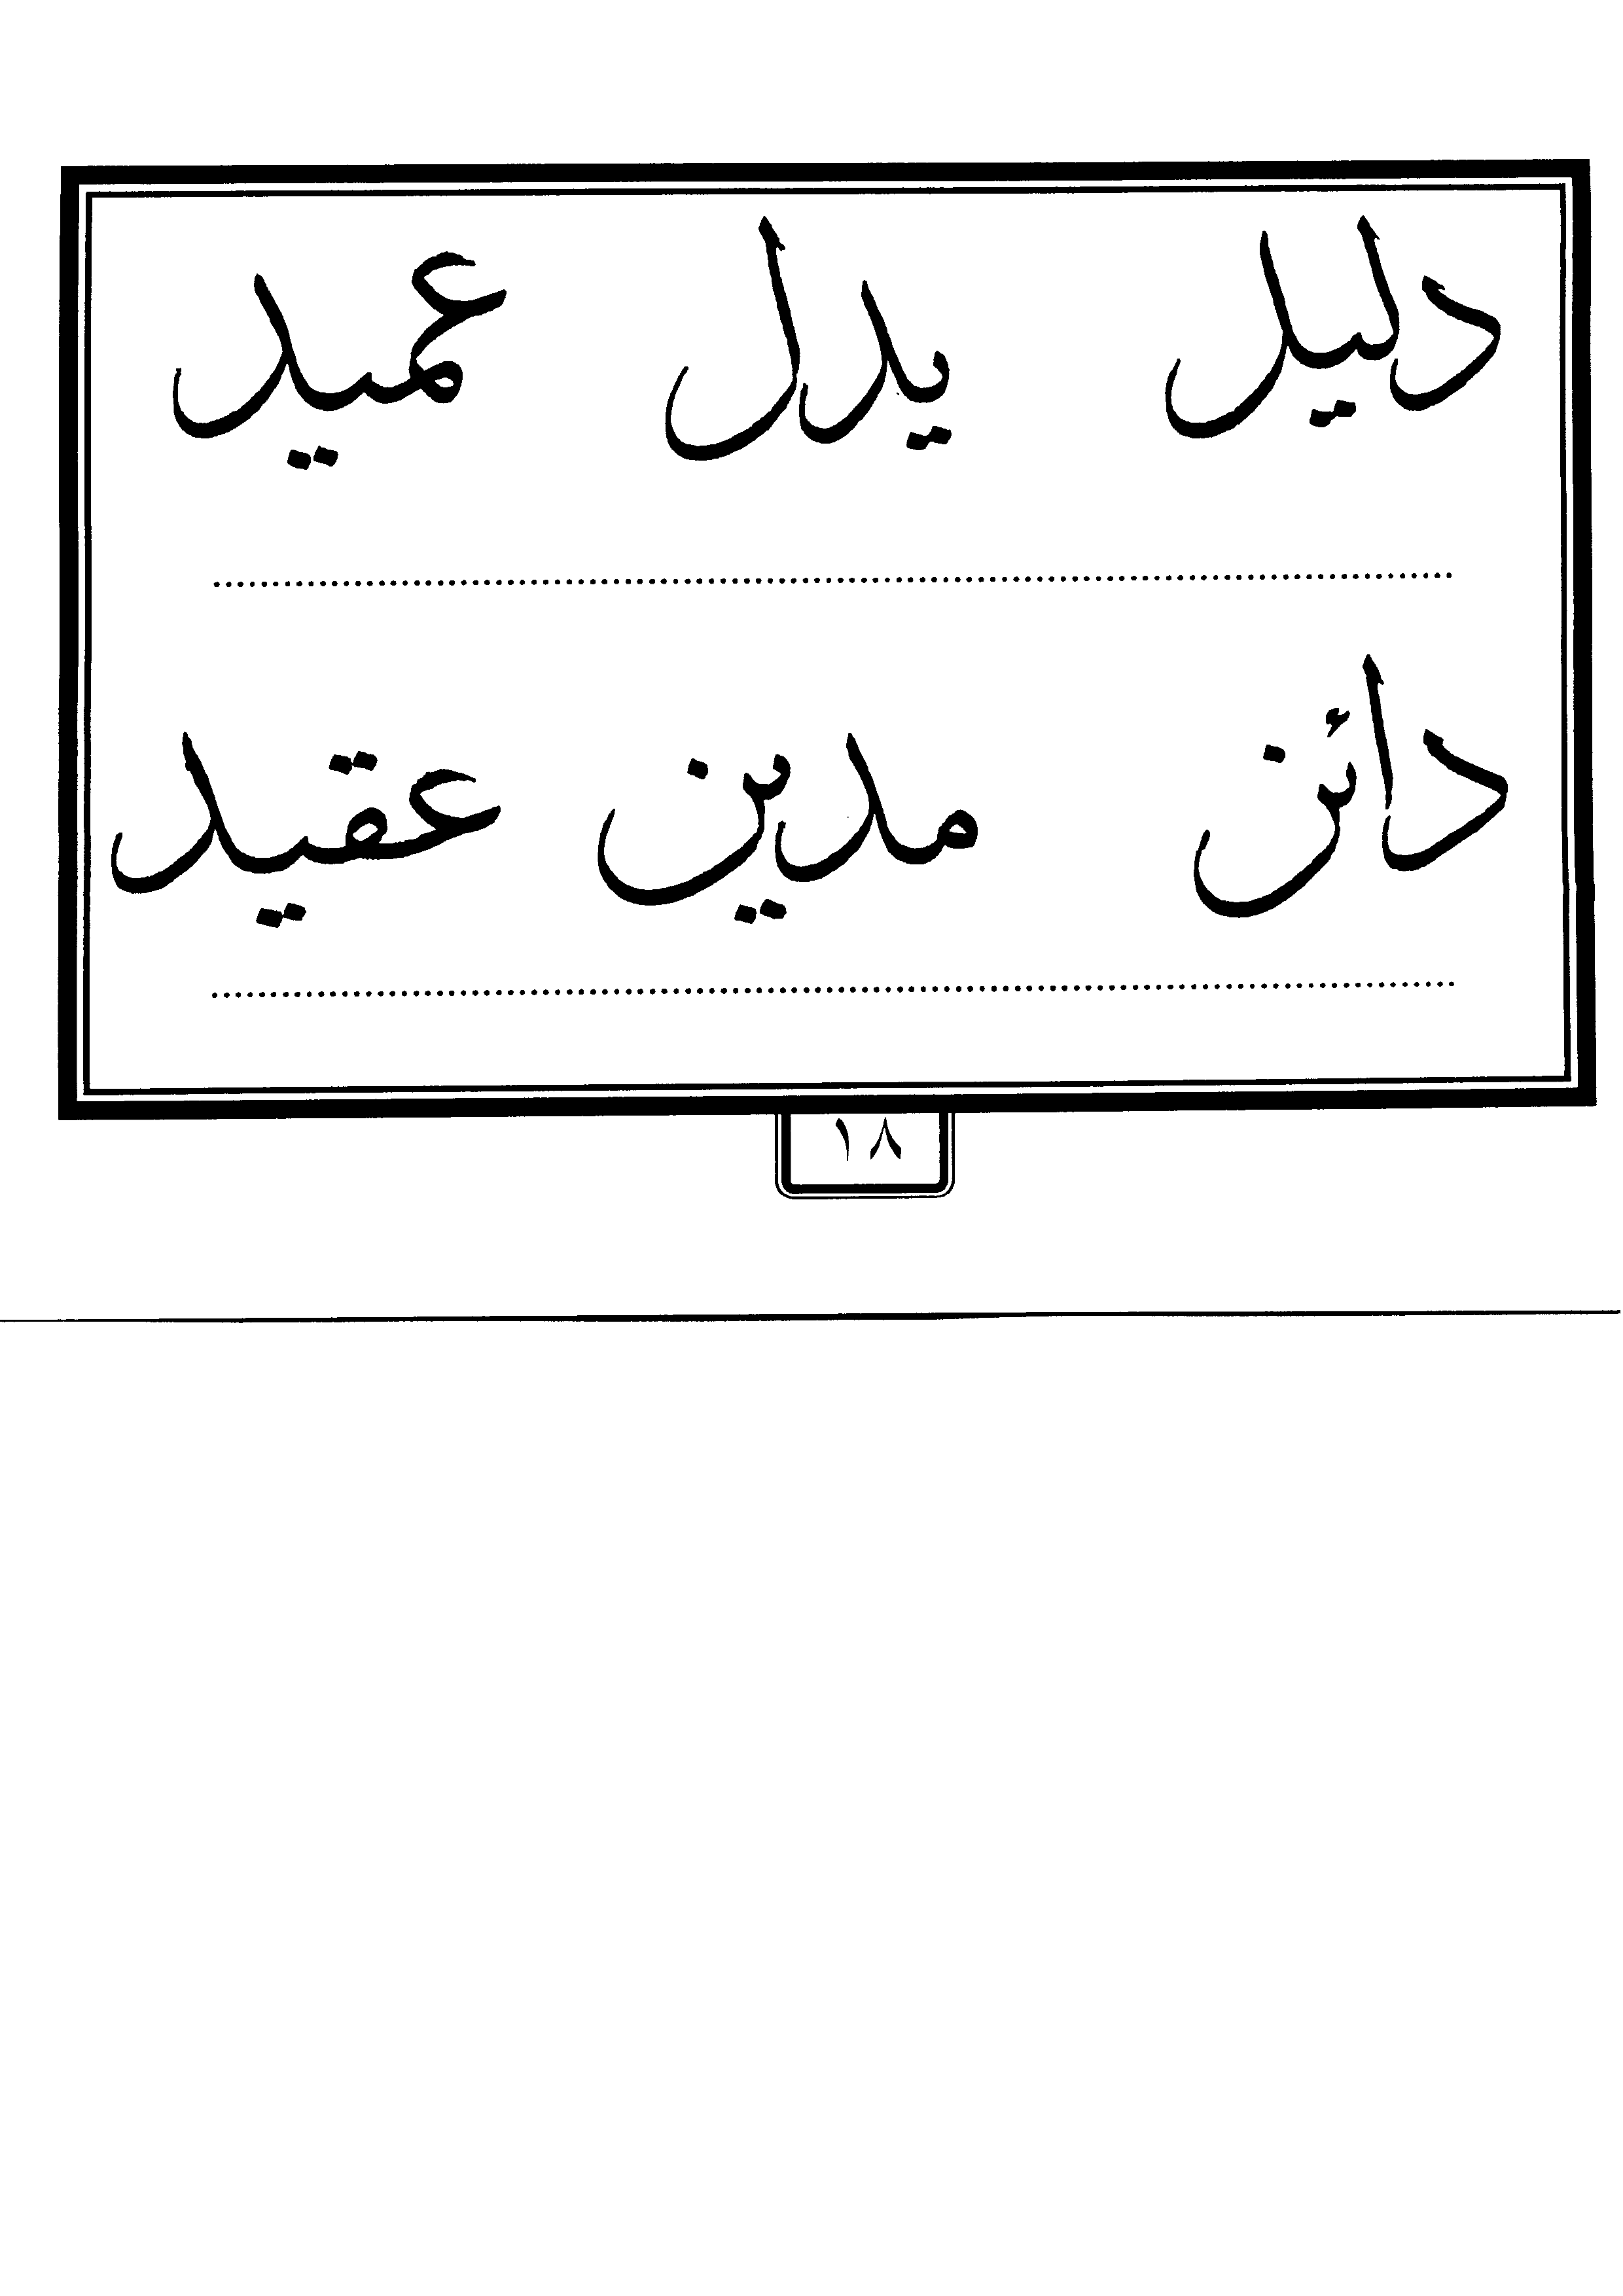 دليل يدل عميد
دائن مدين عقيد
١٨